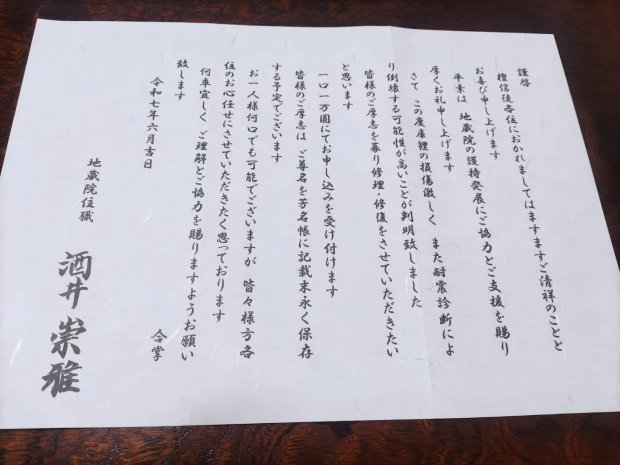 謹啓
檀信徒各位におかれましてはますますご清祥のことと
お喜び申し上げます
平素は 地蔵院の護持発展にご協力とご支援を賜り
厚くお礼申し上げます
さて この度庫裡の損傷激しく また耐震診断によ
り倒壊する可能性が高いことが判明致しました
皆様のご厚志を募り修理・修復をさせていただきたい
と思います
一口一万圓にてお申し込みを受け付けます
皆様のご厚志は ご尊名を芳名帳に記載末永く保存
する予定でございます
お一人様何口でも可能でございますが 皆々様方各
位のお心任せにさせていただきたく思っております
何卒宜しく ご理解とご協力を賜りますようお願い
致します
合掌
令和七年六月吉日
地蔵院住職
酒井 崇雅